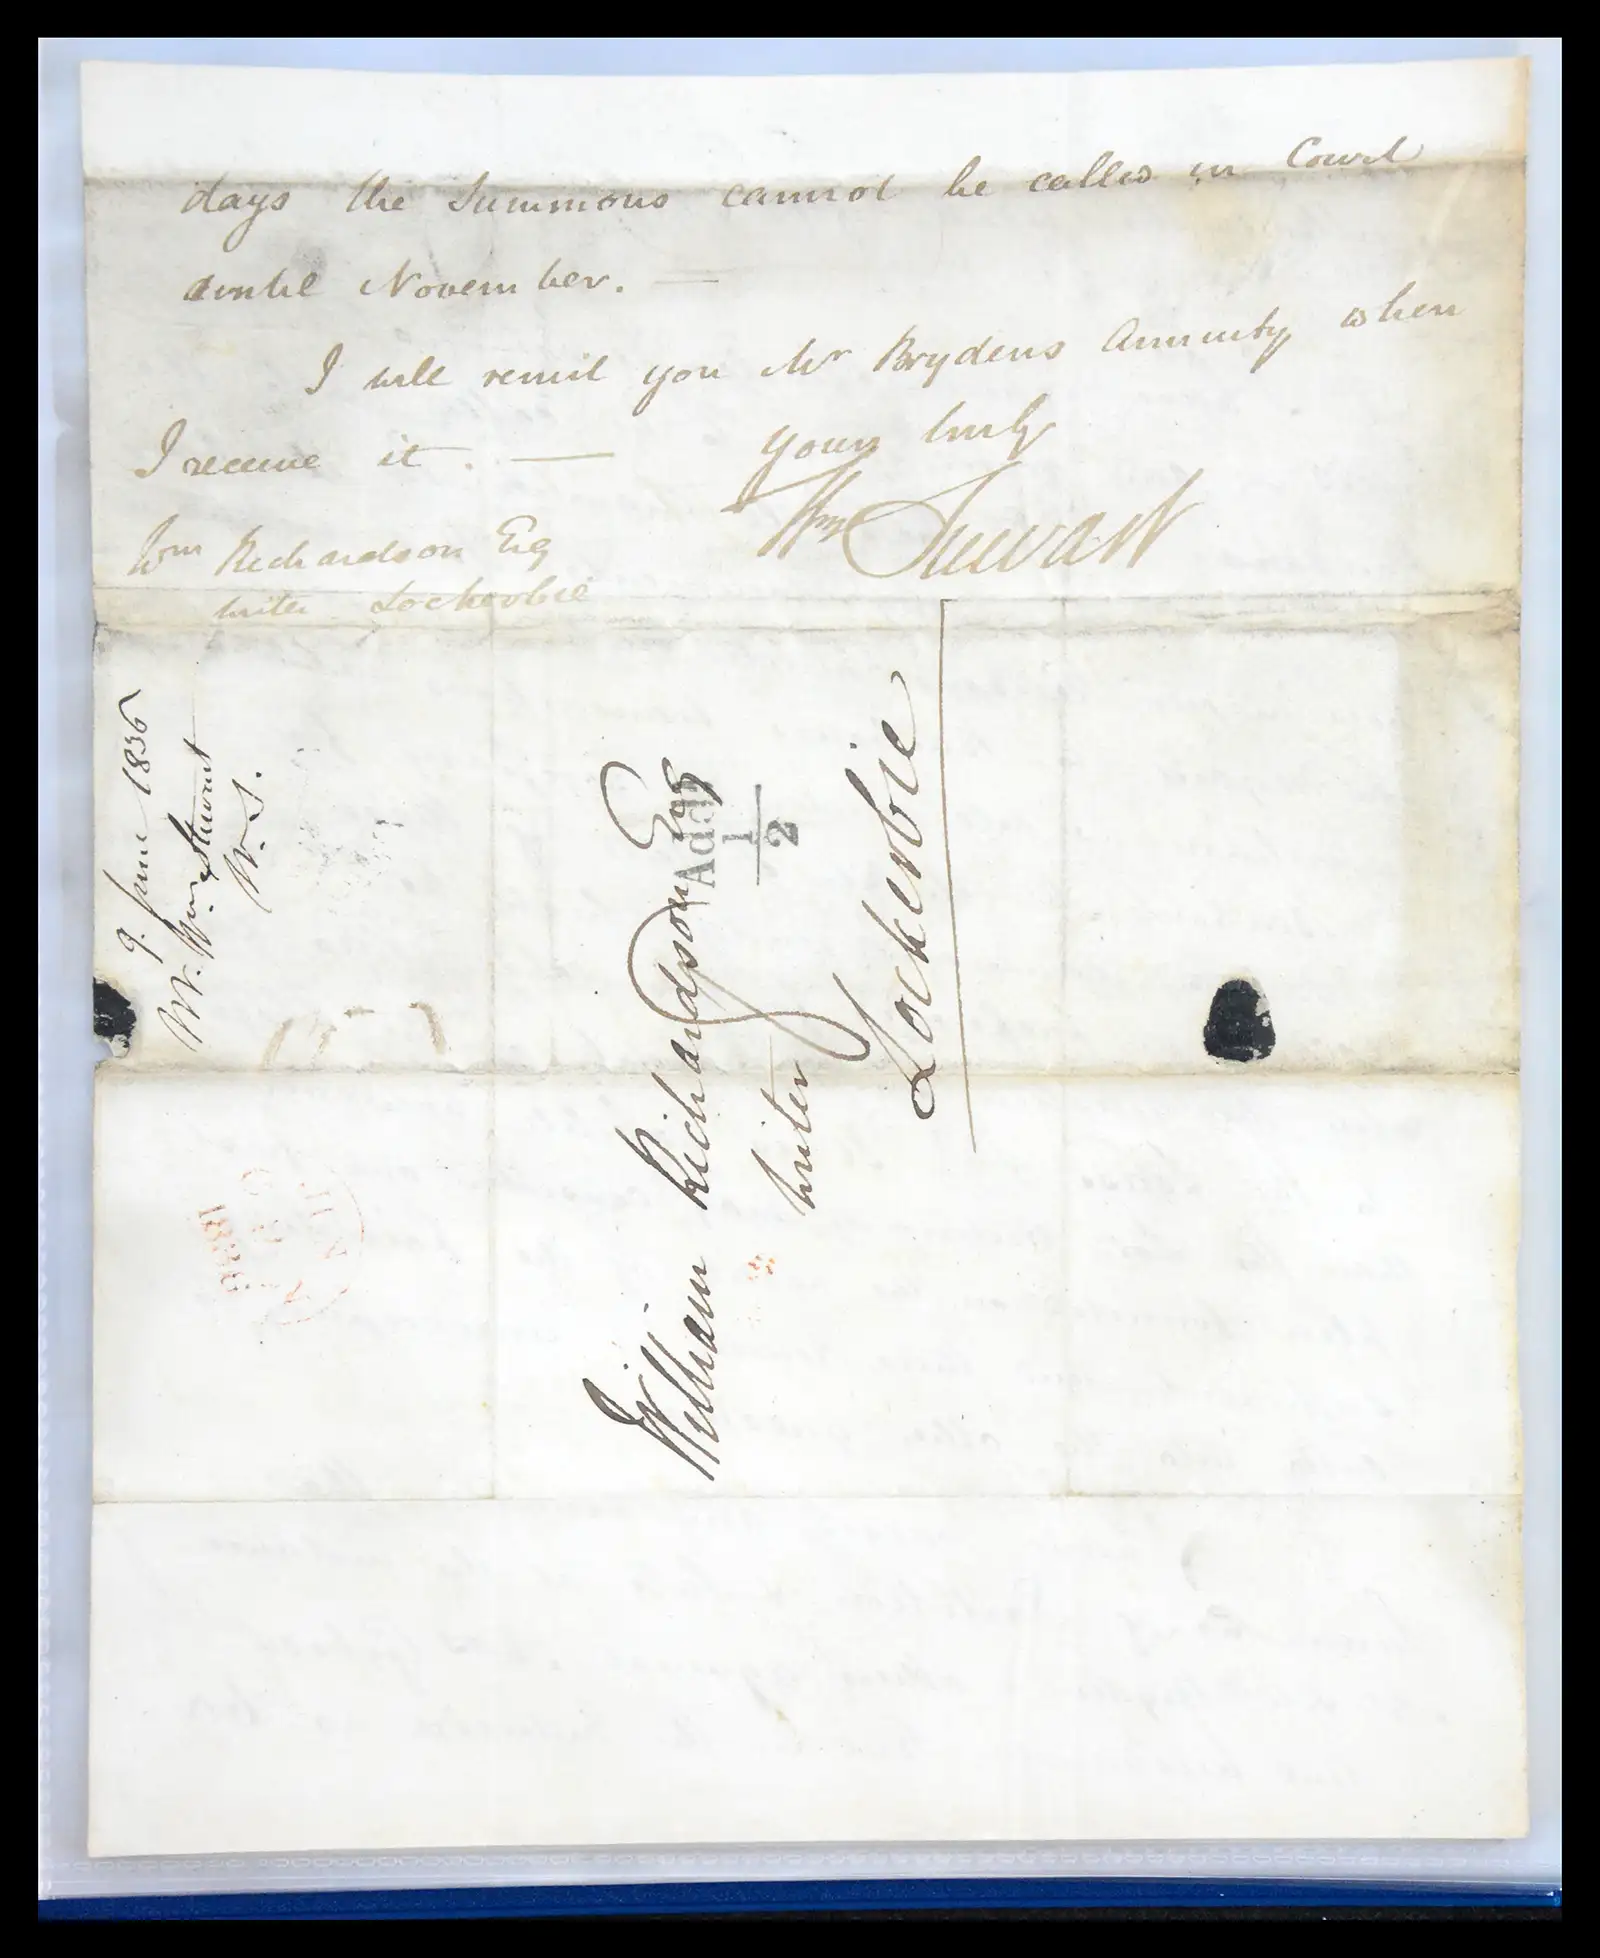 days the Summons cannot be called in Court
until November. —
I will remit you Mr Brydens Annuity when
I receive it. —
Yours truly
Wm Stewart
Wm Richardson Esq
writer Lockerbie
9. June 1836
Mr. Wm Stewart
W.S.
William Richardson Esq
writer
Lockerbie
Add
1
2
JUN
1836